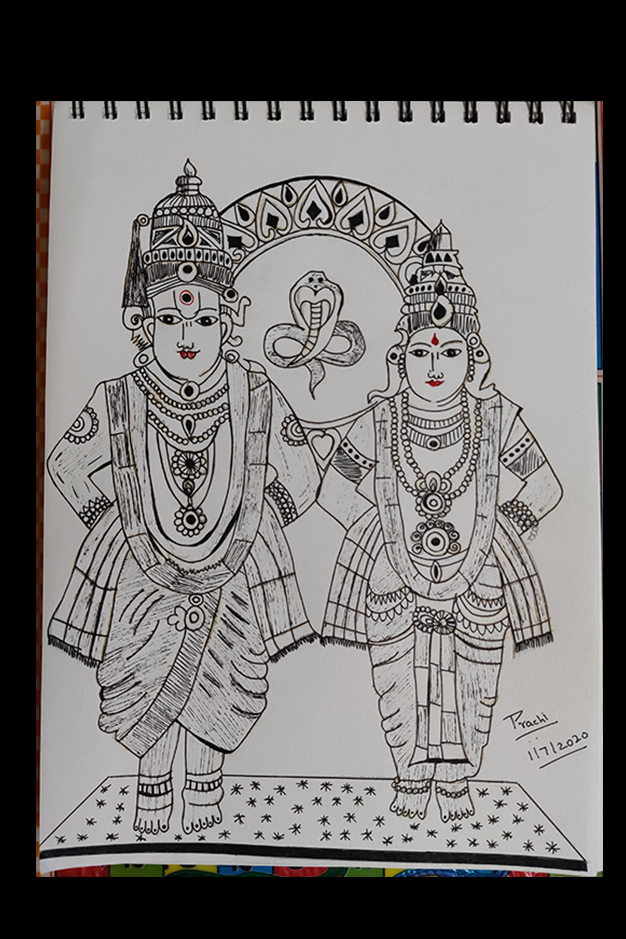 Prachi
1/7/2020